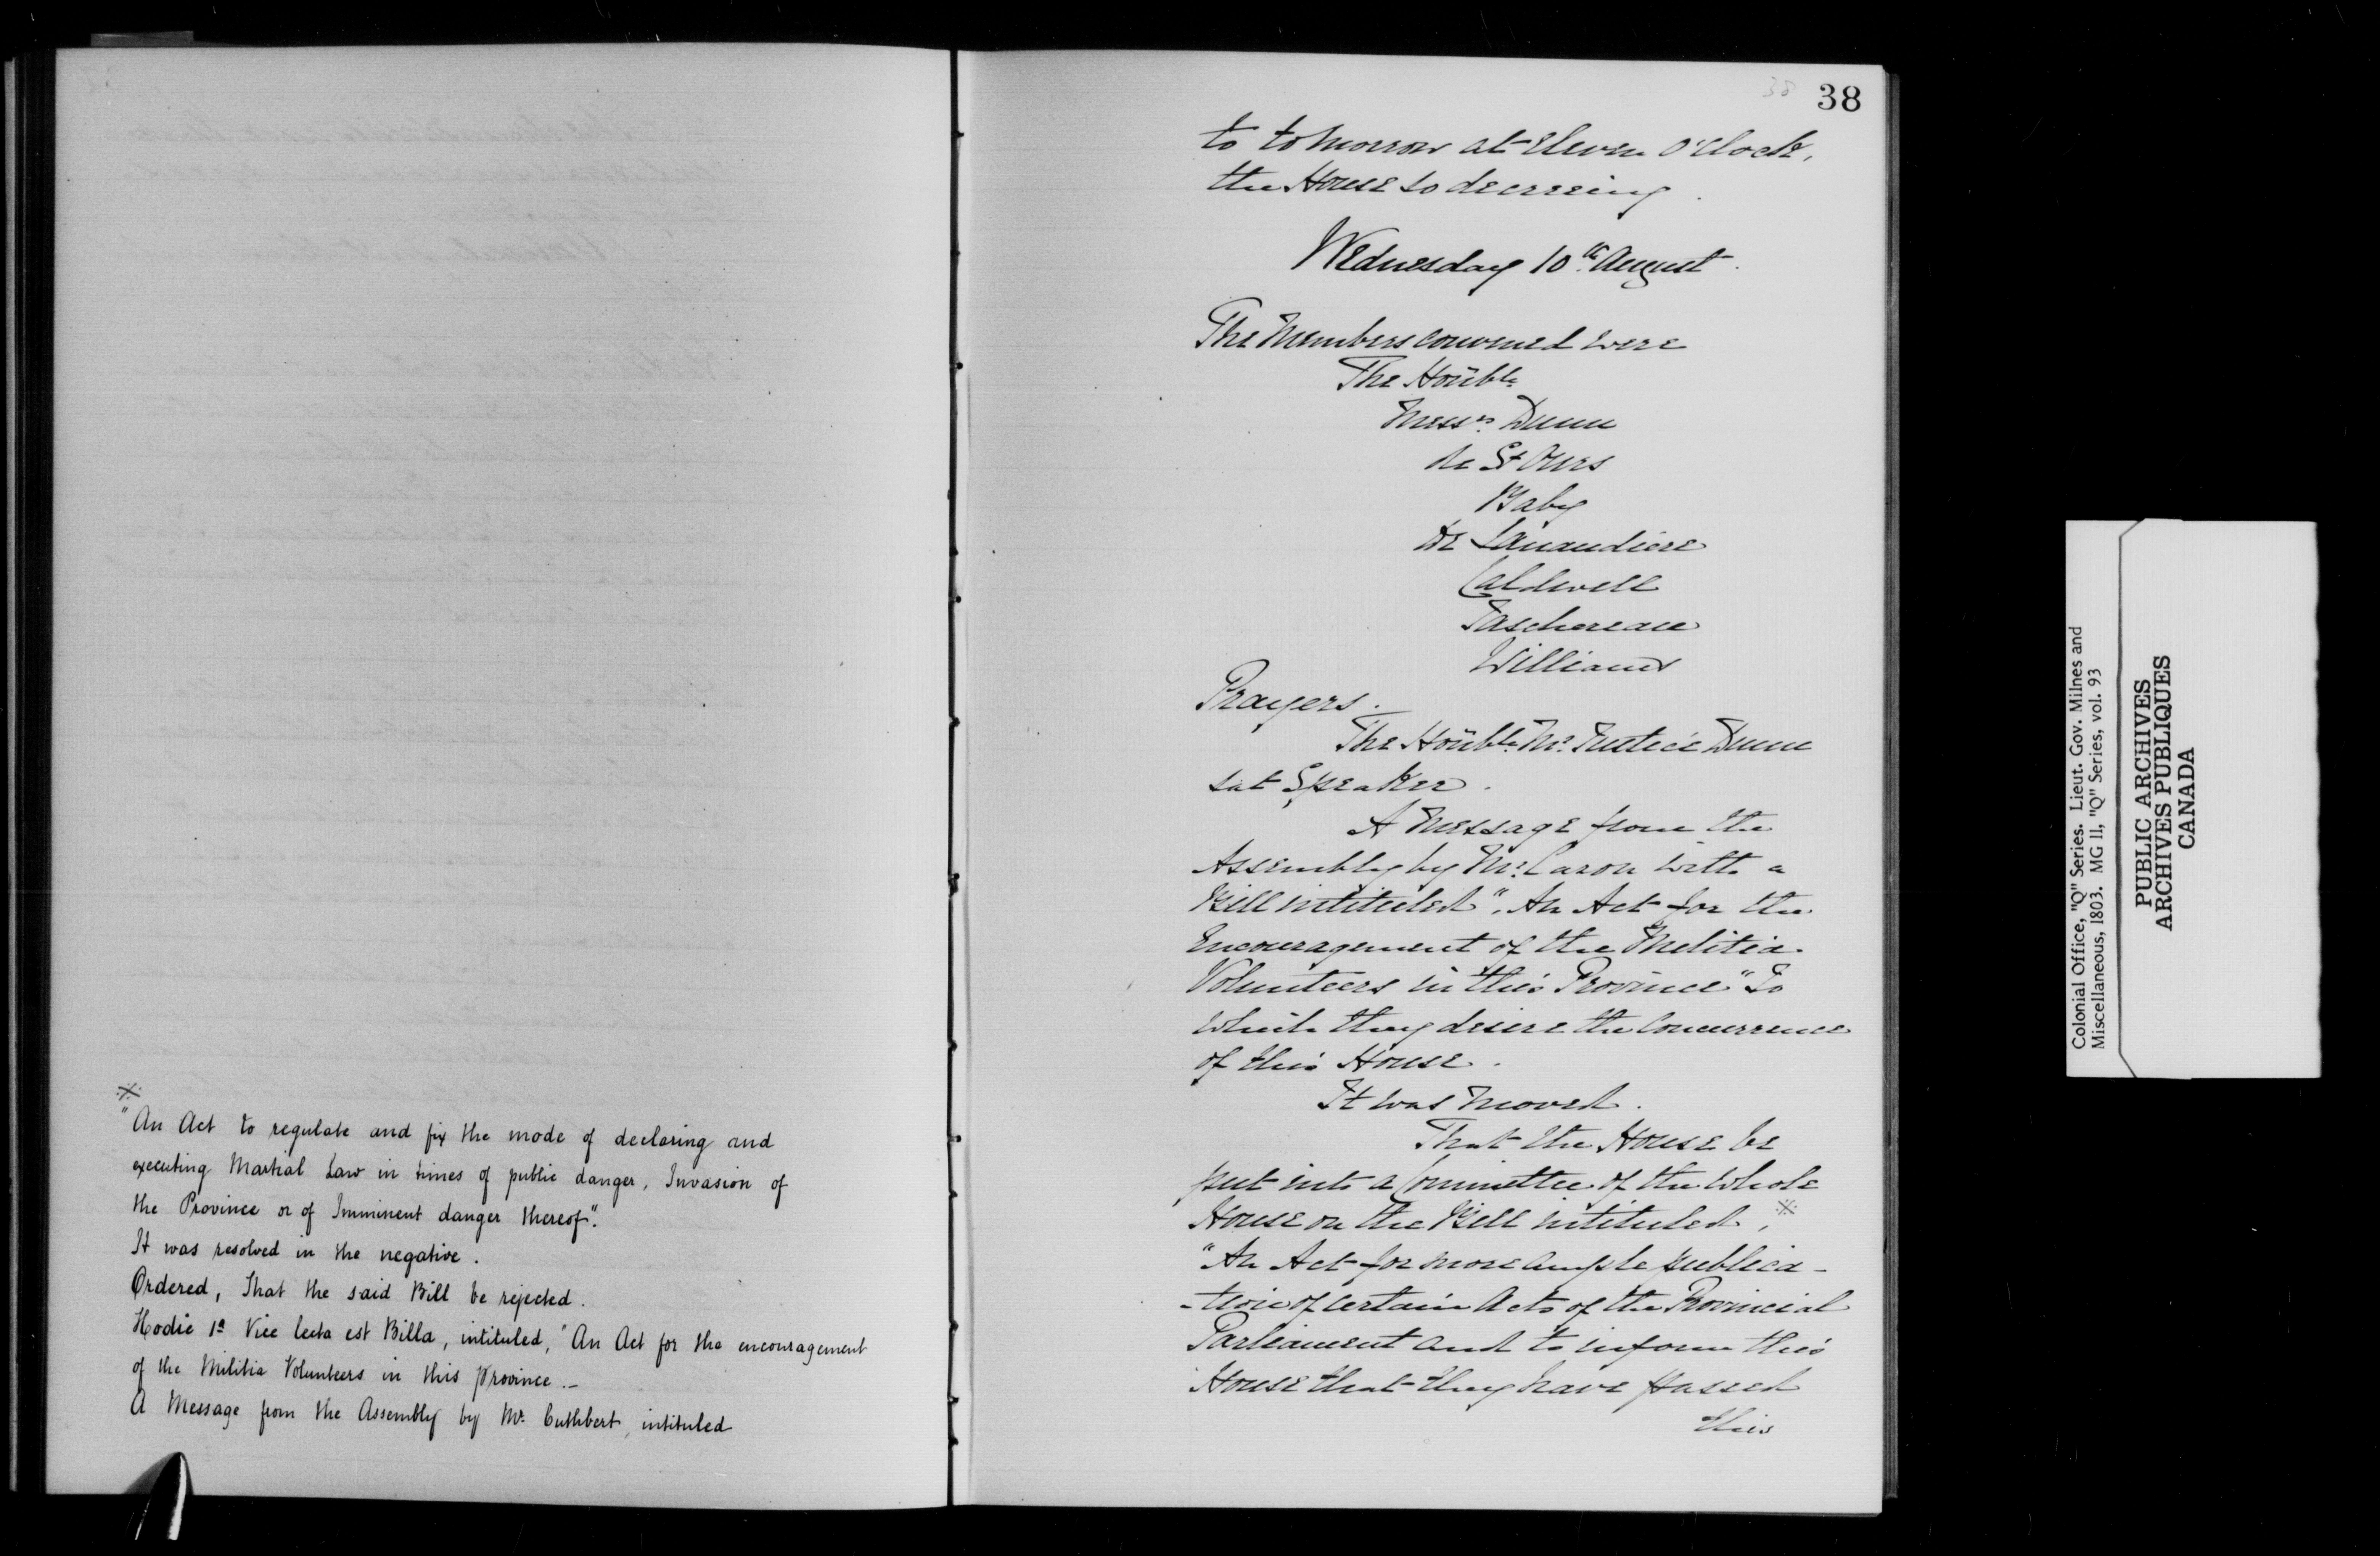 ※
"An Act to regulate and fix the mode of declaring and
executing Martial Law in times of public danger, Invasion of
the Province or of Imminent danger thereof".
It was resolved in the negative.
Ordered, That the said Bill be rejected.
Hodie 1ª Vice lecta est Billa, intituled, "An Act for the encouragement
of the Militia Volunteers in this province.—
A Message from the Assembly by Mr. Cuthbert, intituled
38
38
to to morrow at Eleven O'Clock,
the House so decreeing.
Wednesday 10th August.
The Members convened were
The Honble
Messrs Dunn
de St Ours
Baby
De Lanaudiere
Caldwell
Taschereau
Williams
Prayers.
The Honble Mr Justice Dunn
sat Speaker.
A Message from the
Assembly by Mr Caron with a
Bill intituled "An Act for the
Encouragement of the Militia
Volunteers in this Province" To
which they desire the Concurrence
of this House.
It was Moved.
That the House be
put into a Committee of the whole
House on the Bill intituled, ※
"An Act for more ample publica-
-tion of certain Acts of the Provincial
Parliament and to inform this
House that they have passed
this
Colonial Office, "Q" Series. Lieut. Gov. Milnes and
Miscellaneous, 1803. MG 11, "Q" Series, vol. 93
PUBLIC ARCHIVES
ARCHIVES PUBLIQUES
CANADA